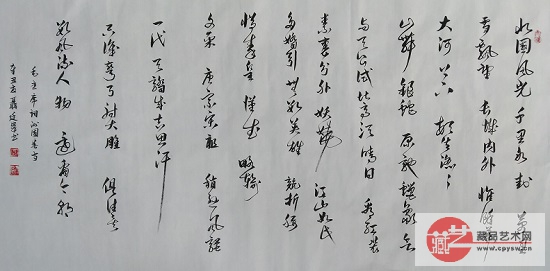 北国风光 千里冰封 万里
雪飘望 长城内外 惟余莽
大河上下 顿失滔滔
山舞银蛇 原驰蜡象 欲
与天公试比高 须晴日 看红装
素裹 分外妖娆 江山如此
多娇 引无数英雄 竞折腰
惜秦皇汉武 略输
文采 唐宗宋祖 稍逊风骚
一代天骄 成吉思汗
只识弯弓射大雕 俱往矣
数风流人物 还看今朝
毛主席词沁园春雪
辛丑
藏艺
藏品艺术网
www.cpysw.cn